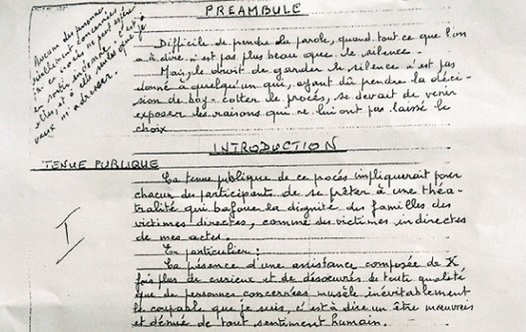 PREAMBULE
Difficile de prendre la parole, quand tout ce que l'on
a à dire n'est pas plus beau que le silence.
Mais, le droit de garder le silence n'est pas
donné à quelqu'un qui, ayant dû prendre la déci-
sion de boy-cotter le procés, se devait de venir
exposer les raisons qui ne lui ont pas laissé le
choix
INTRODUCTION
TENUE PUBLIQUE
La tenue publique de ce procés impliquerait pour
chacun des participants de se prêter à une théa-
tralité qui bafouer la dignité des familles des
victimes directes, comme des victimes indirectes
de mes actes.
En particulier:
La présence d'une assistance composée de X
fois plus de curieux et de désoeuvrés de toute qualité
que de personnes concernées musèle inévitablement
le coupable que je suis, c'est à dire un être mauvais
et dénué de tout sentiment humain.
I
aucune des personnes
réellement concernées
ne peut espérer
en sortir indemne. c'est à
elles, et à elles seules que je
veux m'adresser.